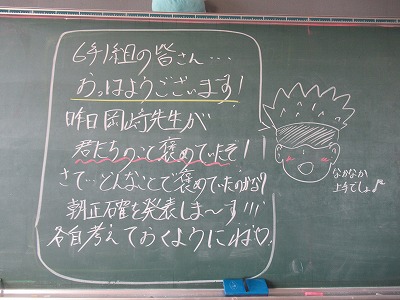 6年1組の皆さん…
おっはようございます!
昨日岡崎先生が
君たちのこと褒めていたぞ!
さて…どんなことで褒めていたのかな?
朝正確を発表しま〜す!!!
各自考えておくようにね♡
なかなか
上手でしょ♪